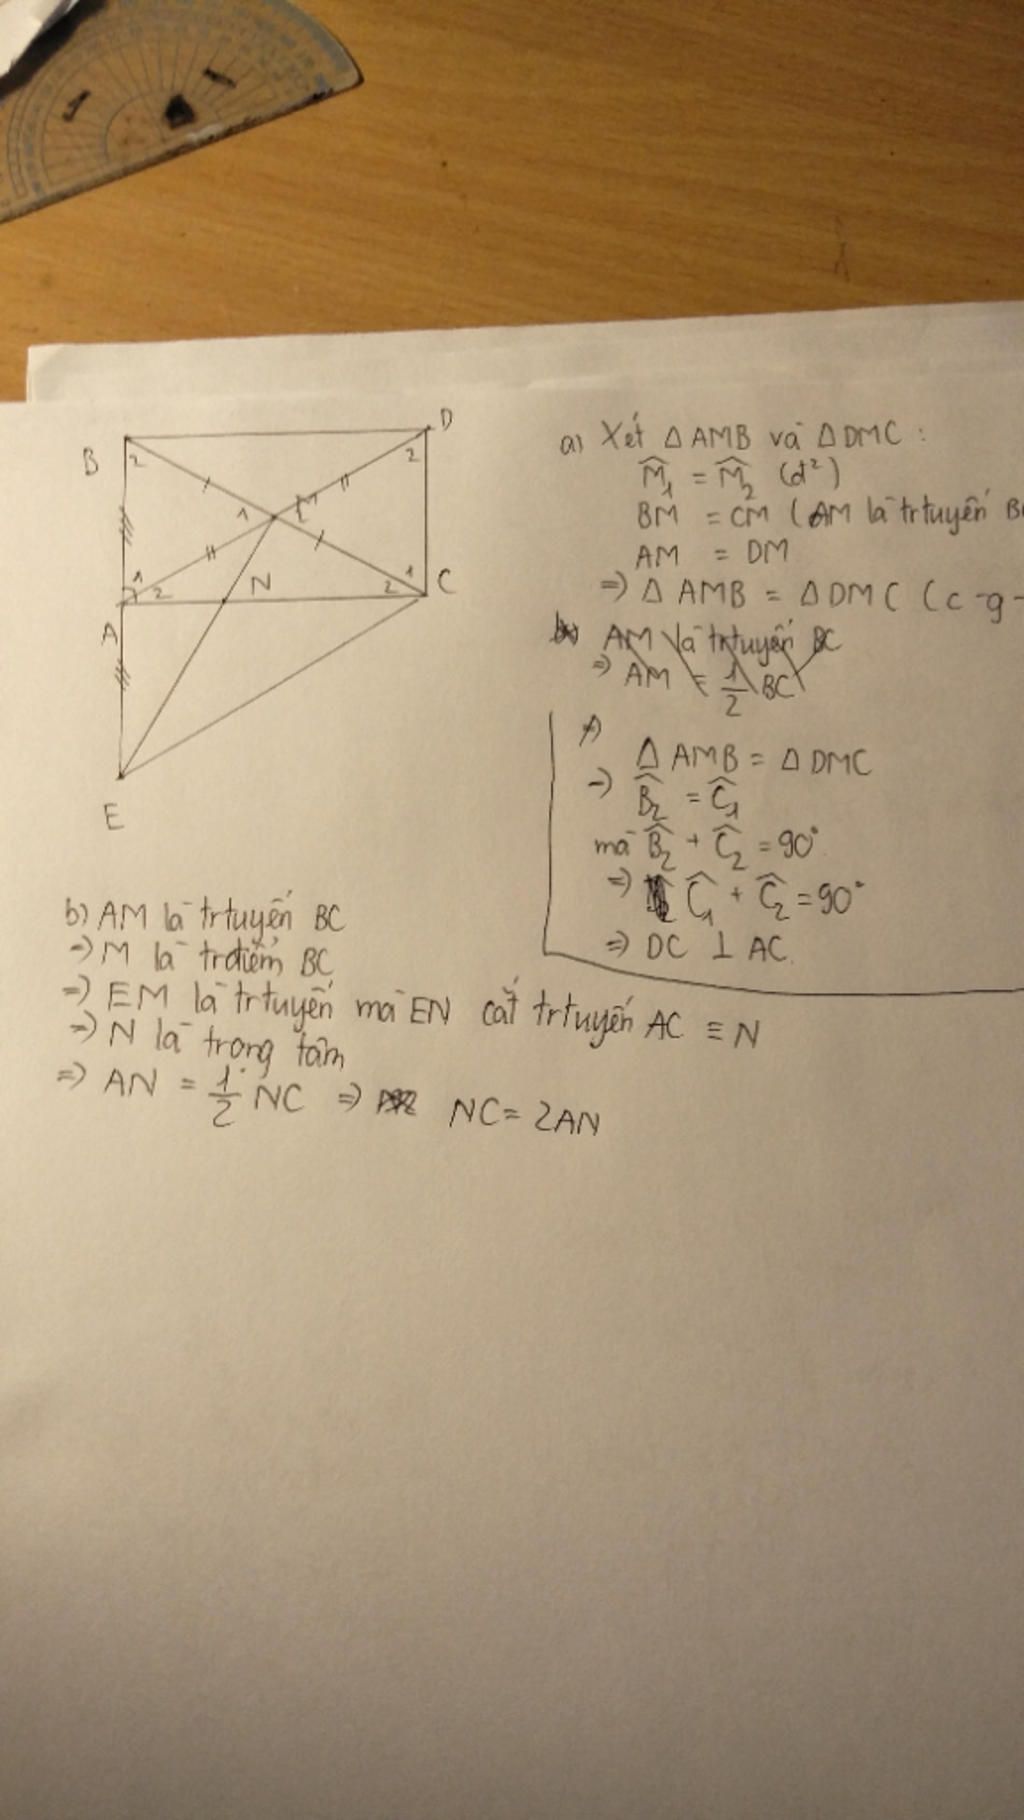 B
D
2
2
1
M
2
1
1
2
N
2
C
A
E
a) Xét Δ AMB và Δ DMC :
M̂₁ = M̂₂ (đ²)
BM = CM (AM là trtuyến
AM = DM
=> Δ AMB = Δ DMC (c-g-
AM là trtuyến BC
=> AM = 1/2 BC
Δ AMB = Δ DMC
=> B̂₂ = Ĉ₁
mà B̂₂ + Ĉ₂ = 90°
=> Ĉ₁ + Ĉ₂ = 90°
=> DC ⊥ AC.
b) AM là trtuyến BC
=> M là trđiểm BC
=> EM là trtuyến mà EN cắt trtuyến AC ≡ N
=> N là trọng tâm
=> AN = 1/2 NC => NC = 2AN